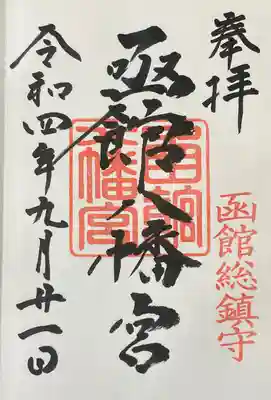 奉拝
函館総鎮守
函館八幡宮
函館八幡宮
令和四年九月廿一日